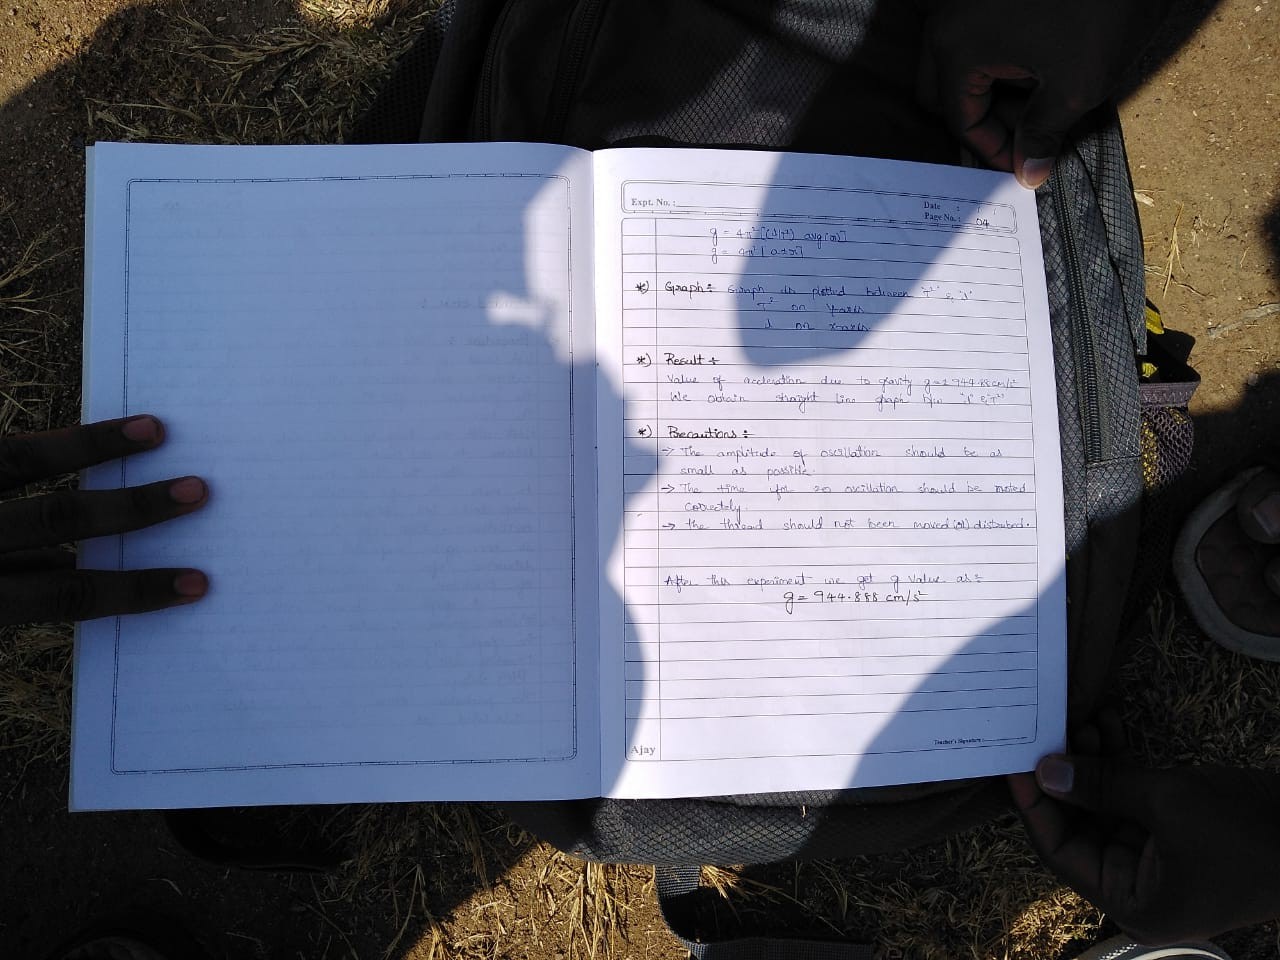 Expt. No. :
Date :
Page No. : 04
g = 4π² [(l/T²) avg(m)]
g = 4π²
*) Graph :- Graph is plotted between "T²" & "l"
T² on Y-axis
l on x-axis
*) Result :-
Value of accleration due to gravity g = 944.88 cm/s²
We obtain straight line graph b/w "l" & "T²"
*) Precautions :-
→ The amplitude of oscillation should be as
small as possible.
→ The time for 20 oscillation should be noted
correctely.
→ the thread should not been moved (or) distrubed.
After this experiment we get g value as :-
g = 944.888 cm/s²
Ajay
Teacher's Signature :